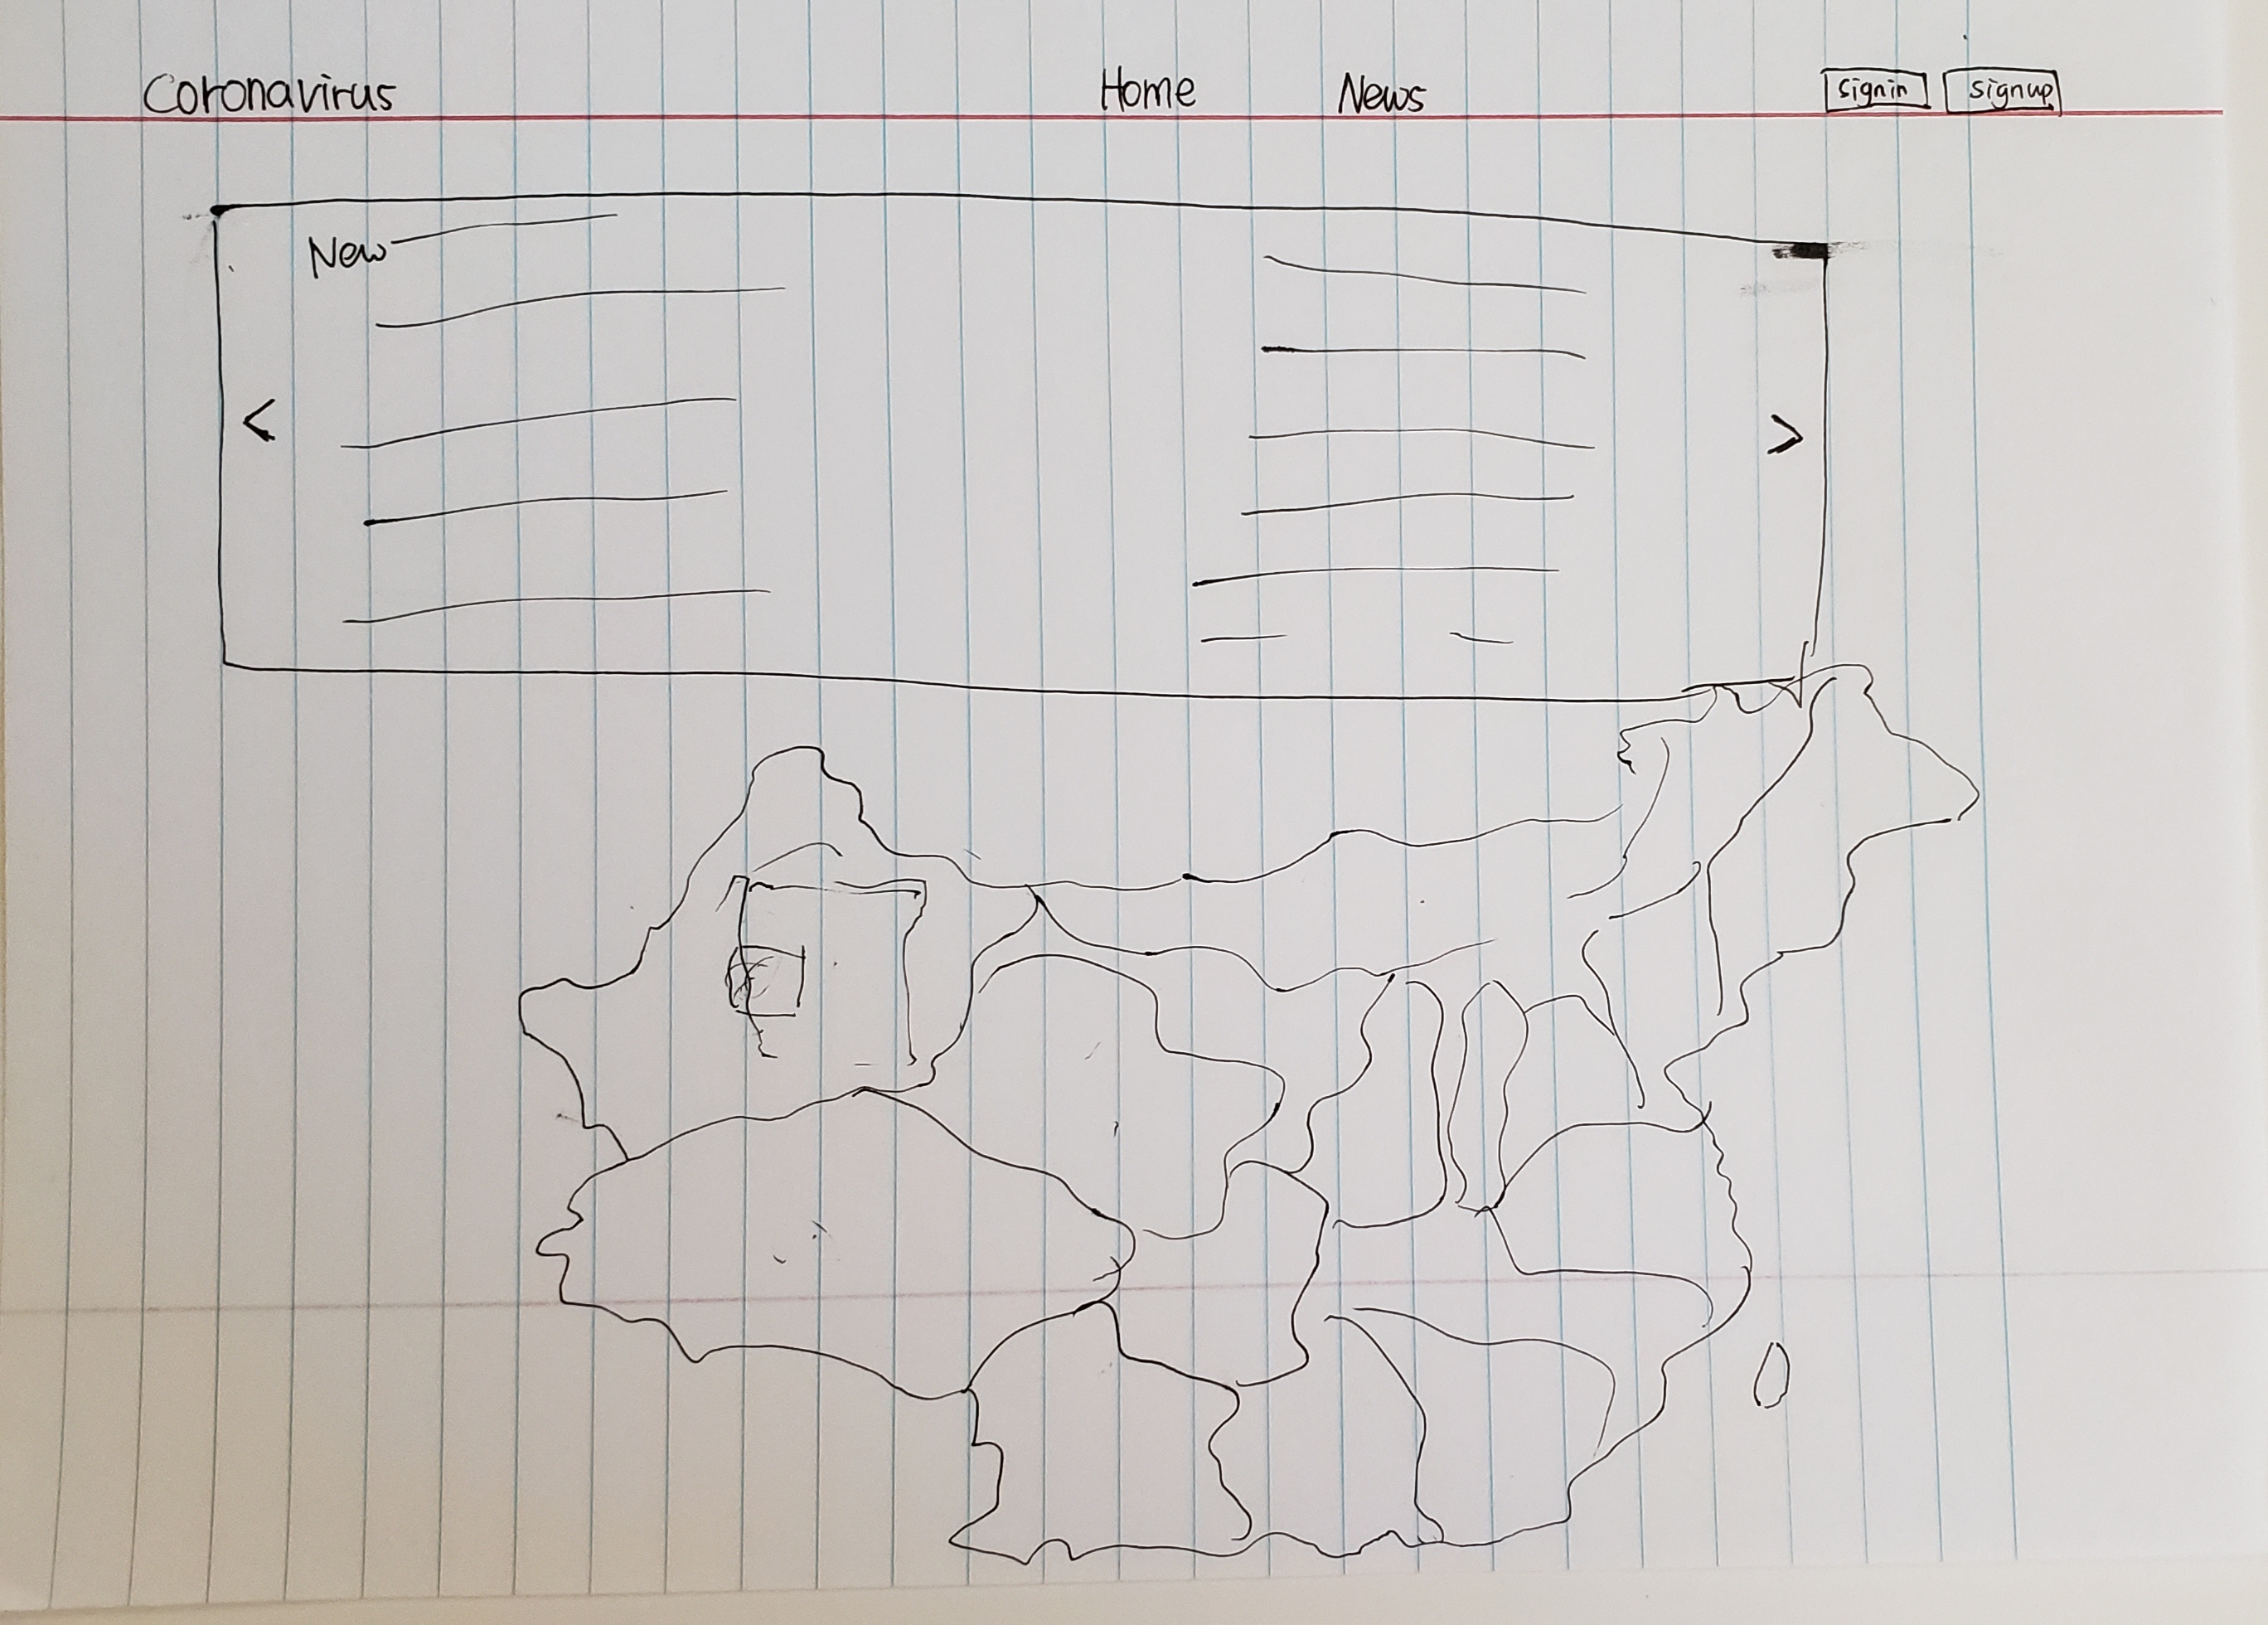 Coronavirus Home News Signin Signup
New
< >